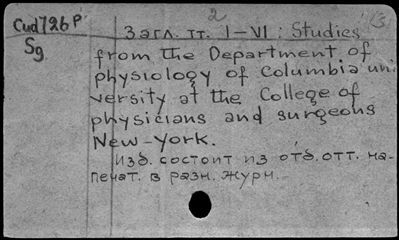 2 3
Cud 726 P
Sg
Загл. тт. I-VI: Studies
from the Department of
physiology of Columbia uni
versity at the College of
physicians and surgeons
New-York.
Изд. состоит из отд. отт. на-
печат. в разн. журн.